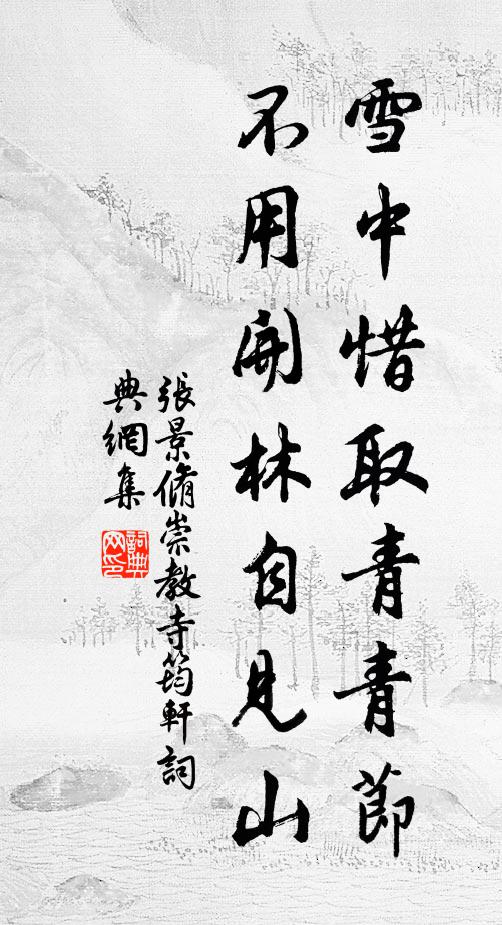 雪中惜取青青節
不用開林自見山
張景脩崇教寺筠軒詞
典網集
詞典网印